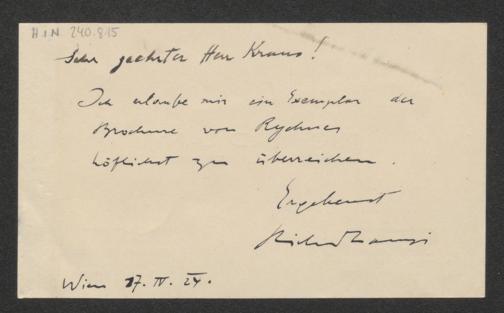 H.I.N. 240.815
Sehr geehrter Herr Kraus!
Ich erlaube mir ein Exemplar der
Brochure von Rychner
höflichst zu überreichen.
Ergebenst
Richard Lanyi
Wien 17. IV. 24.